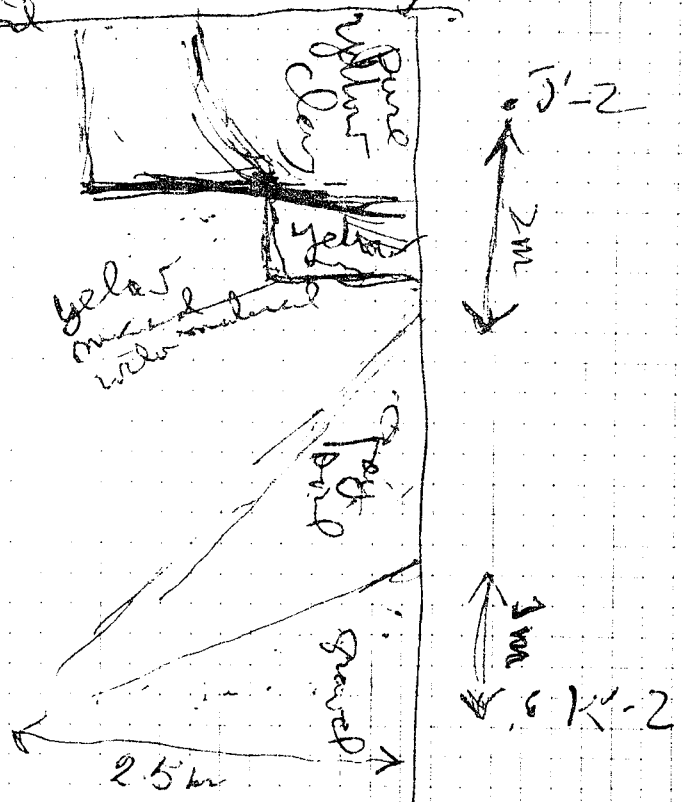 Pure
yellow
clay
J'-2
2m
yellow
yellow
mixed
with material
gravel
1m
K'-2
2.5m